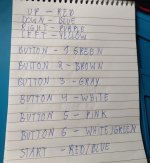 UP - RED
DOWN - BLUE
RIGHT - PURPLE
LEFT - YELLOW
BUTTON - 1 GREEN
BUTTON 2 - BROWN
BUTTON 3 - GRAY
BUTTON 4 - WHITE
BUTTON 5 - PINK
BUTTON 6 - WHITE/GREEN
START - RED/BLUE